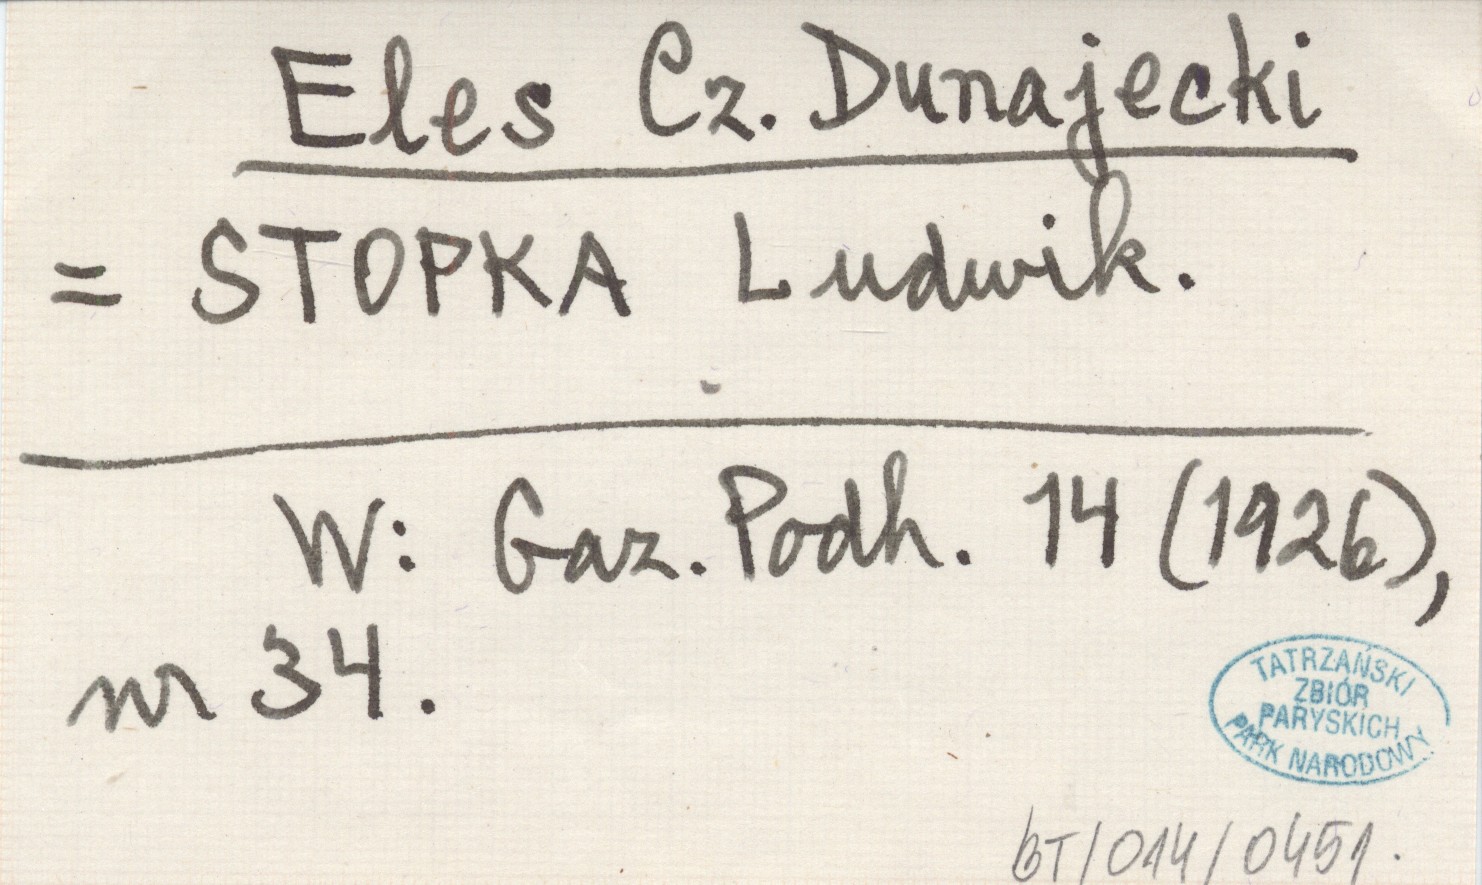 Eles Cz. Dunajecki
= STOPKA Ludwik.
W: Gaz. Podh. 14 (1926),
nr 34.
TATRZAŃSKI
ZBIÓR
PARYSKICH
PARK NARODOWY
BT/014/0451.